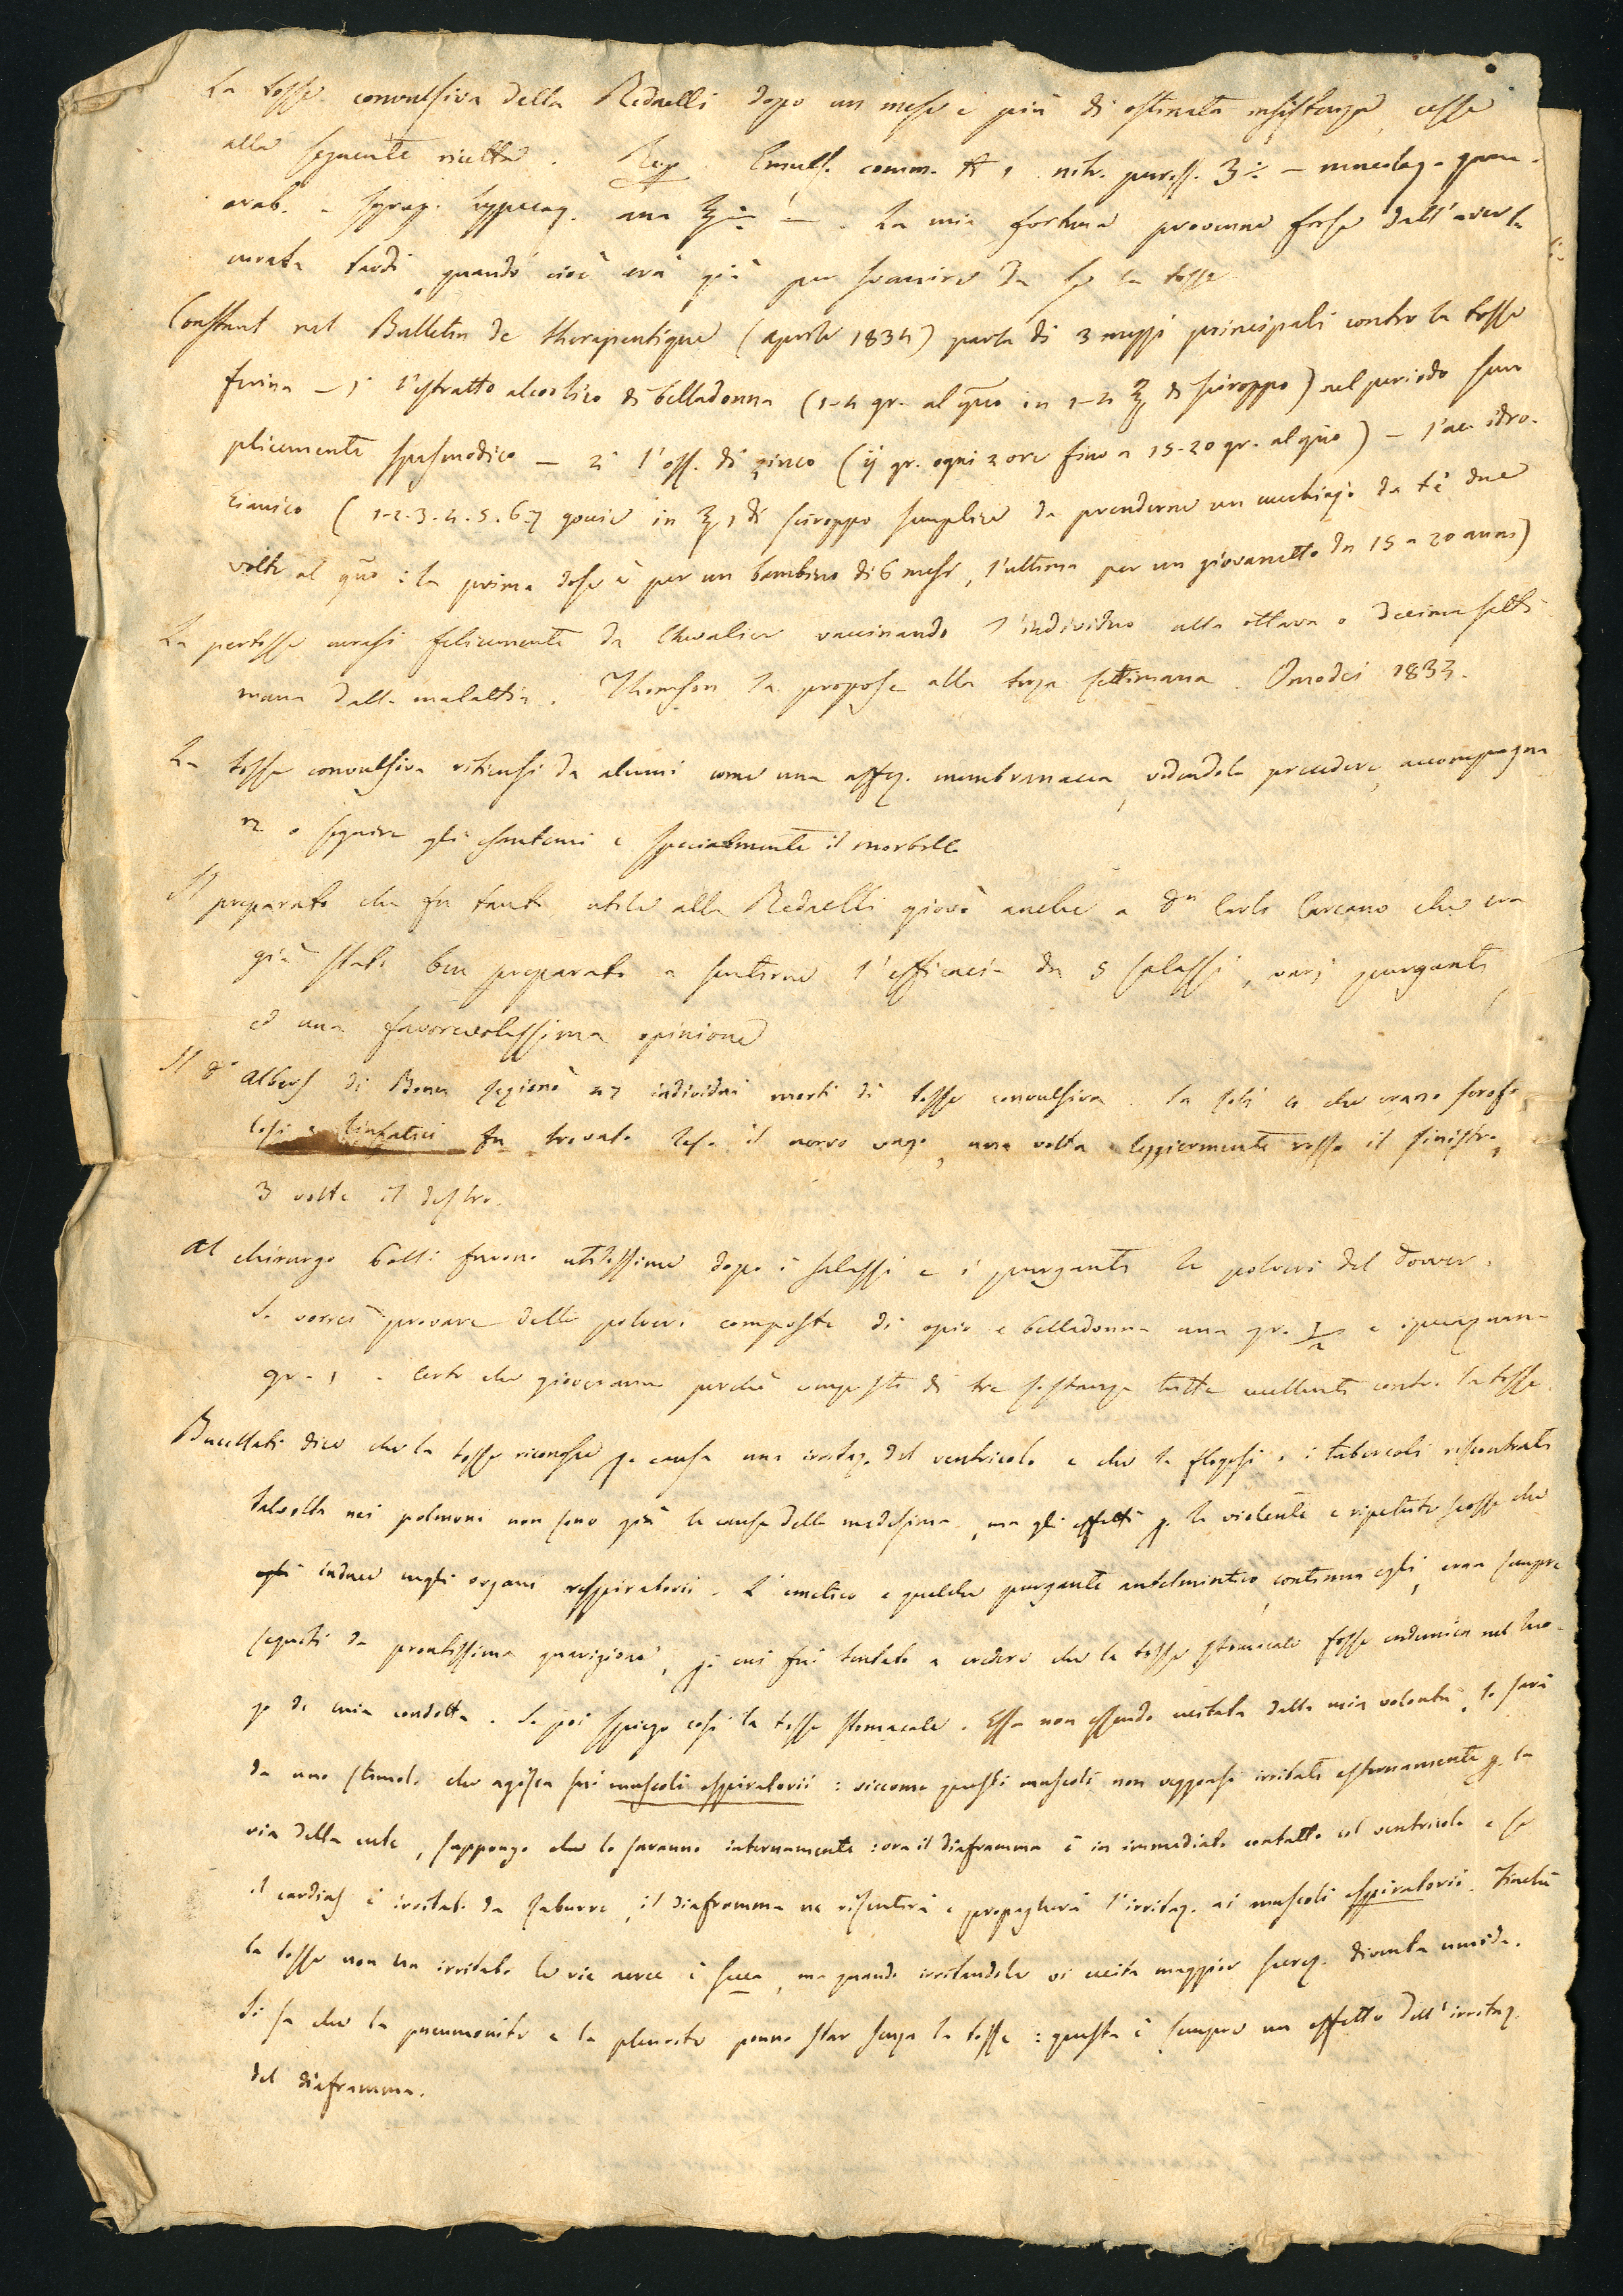 La tosse convulsiva della Redaelli dopo un mese e più di ostinata insistenza, cesse
alla seguente ricetta. Rep. Emuls. comm. ℔ 1 nitr. puriss. ʒ - mucilag. gum.
arab. - syrup. hyppecaq. ana ℥ - . La mia fortuna provenne forse dall'averla
curata tardi, quando cioè era già per svanire da se la tosse.
Constant nel Bulletin de therapeutique (aprile 1834) parla di 3 mezzi principali contro la tosse
ferina - 1° l'estratto alcoolico di belladonna (1-4 gr. al gno in 1-2 ℥ di sciroppo) nel periodo sem
plicemente spasmodico - 2° l'oss. di zinco (ij gr. ogni 2 ore fino a 15-20 gr. al gno) - l'ac. idro-
cianico (1-2-3-4-5-6-7 goccie in ℥ 1 di sciroppo semplice da prenderne un cucchiajo da tè due
volte al gno: la prima dose è per un bambino di 6 mesi, l'ultima per un giovanetto da 15 a 20 anni)
La pertosse curasi felicemente da Chevalier vaccinando l'individuo alla ottava o decima setti
mana della malattia. Thomson la propose alla terza settimana. Omodei 1833.
La tosse convulsiva ritiensi da alcuni come una affez. membranacea, vedendola precedere, accompagna
re o seguire gli esantemi e specialmente il morbillo
Il preparato che fu tanto utile alla Redaelli giovò anche a Dn Carlo Carcano che era
già stato ben preparato a sentirne l'efficacia da 5 salassi, varj purganti
ed una favorevolissima opinione
Il Dr Albers di Bonn sezionò 47 individui morti di tosse convulsiva. In soli 4 che erano scrofo
losi e linfatici fu trovato leso il nervo vago, una volta leggiermente rosso il sinistro,
3 volte il destro.
Al chirurgo Galli furono utilissime dopo i salassi e i purganti le polveri del Dower.
Io vorrei provare delle polveri composte di opio e belladonna ana gr. 1/2 e ipecaquana
gr. 1. Certo che gioveranno perchè composte di tre sostanze tutte eccellenti contro la tosse.
Bucellati dice che la tosse riconosce p. causa una irritaz. del ventricolo e che la flogosi o i tubercoli riscontrati
talvolta nei polmoni non sono già la causa della medesima, ma gli effetti p. le violente e ripetute scosse che
egli induce negli organi respiratorii. L'emetico e qualche purgante antelmintico, continua egli, eran sempre
seguiti da prontissima guarigione, p. cui fui tentato a credere che la tosse stomacale fosse endemica nel luo-
go di mia condotta. Io poi spiego così la tosse stomacale. Essa non essendo eccitata dalla mia volontà, lo sarà
da uno stimolo che agisca sui muscoli espiratorii: siccome questi muscoli non veggonsi irritati esternamente p. la
via della cute, suppongo che lo saranno internamente: ora il diaframma è in immediato contatto col ventricolo e se
il cardias è irritato da zaburre, il diaframma ne risentirà e propagherà l'irritaz. ai muscoli espiratorii. Finchè
la tosse non ha irritato le vie aeree è secca, ma quando irritandole vi eccita maggior secrez. diventa umida.
Si sa che la pneumonite e la pleurite ponno star senza la tosse: questa è sempre un effetto dell'irritaz.
del diaframma.